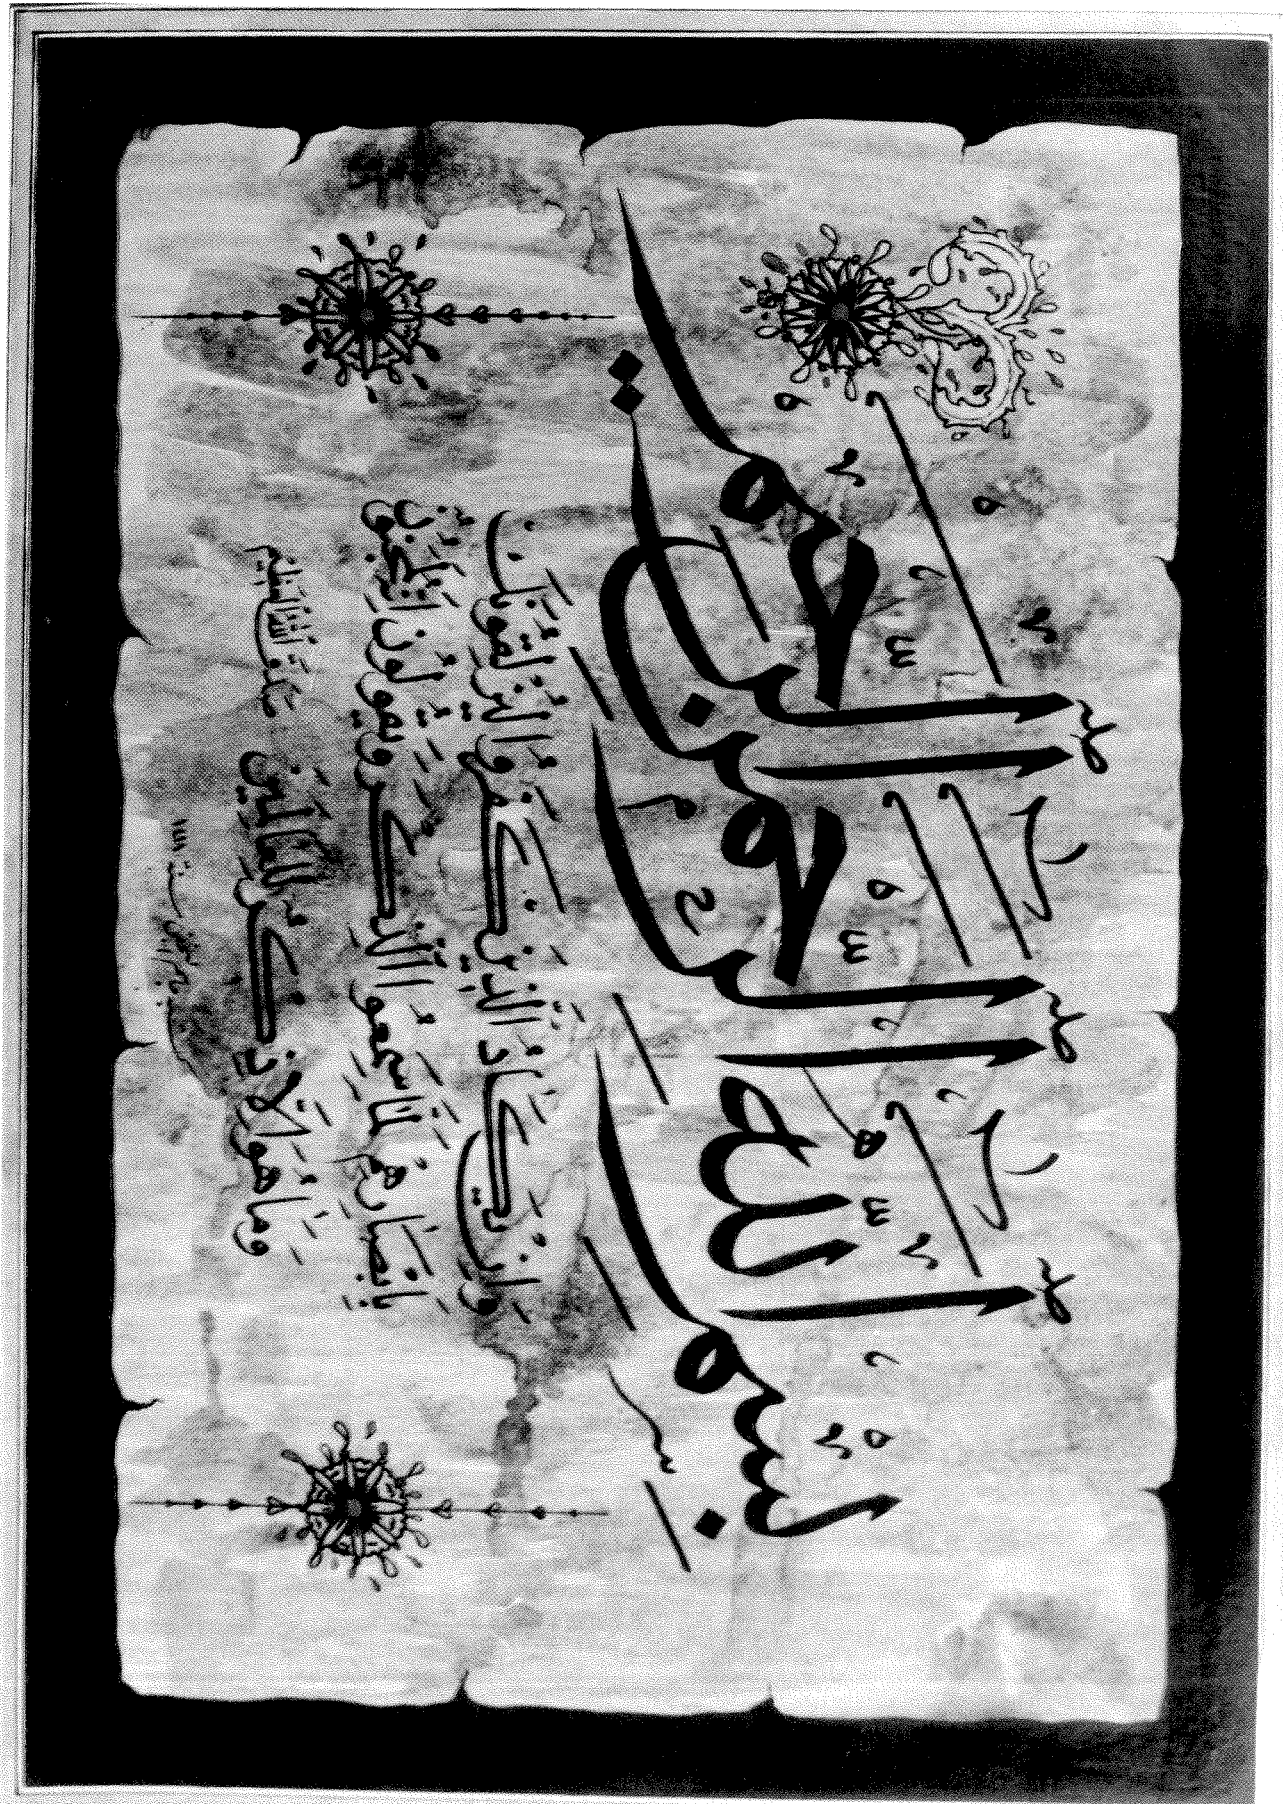 بِسْمِ اللهِ الرَّحْمٰنِ الرَّحِيمِ
وَإِنْ يَكَادُ الَّذِينَ كَفَرُوا لَيُزْلِقُونَكَ
بِأَبْصَارِهِمْ لَمَّا سَمِعُوا الذِّكْرَ وَيَقُولُونَ إِنَّهُ لَمَجْنُونٌ
وَمَا هُوَ إِلَّا ذِكْرٌ لِلْعَالَمِينَ